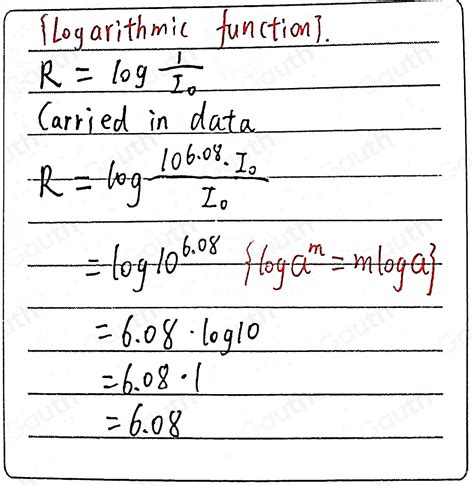 {Logarithmic function}.
R = log 1/I₀
Carried in data
R = log 10^6.08 · I₀ / I₀
= log10^6.08 {loga^m = mloga}
= 6.08 · log10
= 6.08 · 1
= 6.08